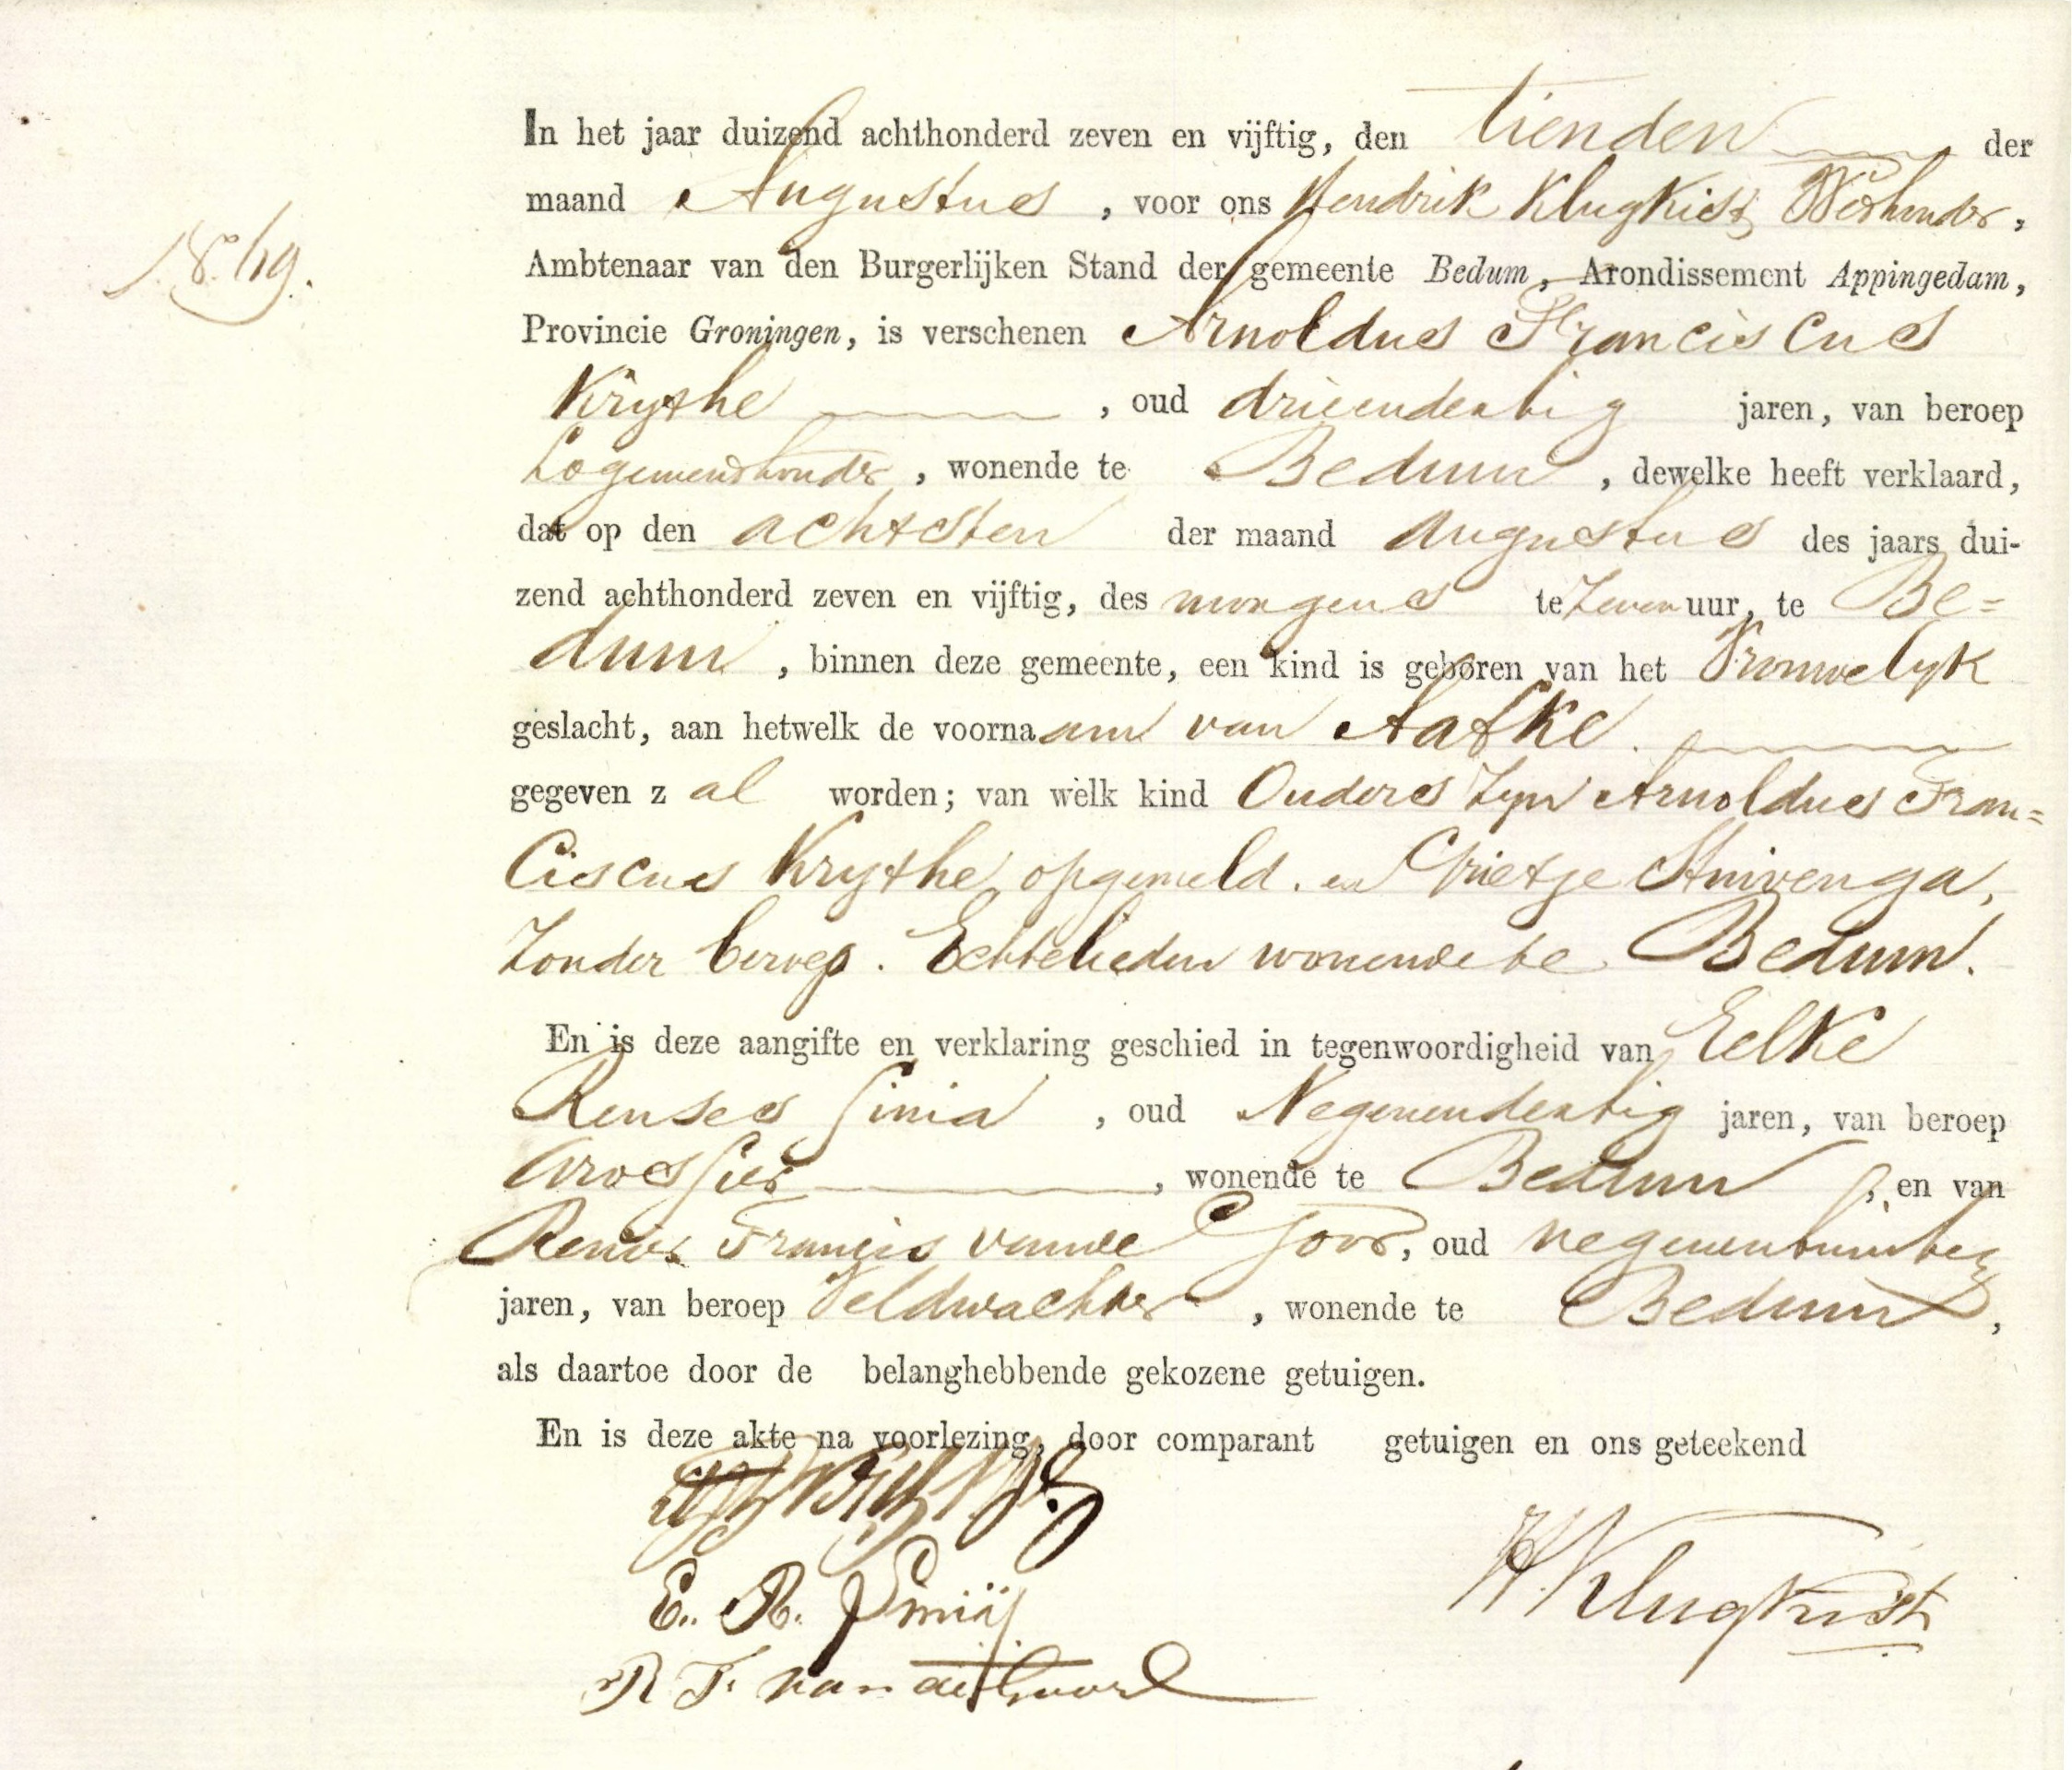 In het jaar duizend achthonderd zeven en vijftig, den tienden der
maand Augustus , voor ons Hendrik Klugkist Wethouder,
Ambtenaar van den Burgerlijken Stand der gemeente Bedum, Arondissement Appingedam,
Provincie Groningen, is verschenen Arnoldus Franciscus
Krythe , oud drieendertig jaren, van beroep
Logementhouder , wonende te Bedum , dewelke heeft verklaard,
dat op den achtsten der maand Augustus des jaars dui-
zend achthonderd zeven en vijftig, des morgens te Zeven uur, te Be=
dum , binnen deze gemeente, een kind is geboren van het Vrouwelyk
geslacht, aan hetwelk de voornaam van Aafke.
gegeven zal worden; van welk kind Ouders Zyn Arnoldus Fran=
Ciscus Krythe, opgemeld. en Grietje Stuivenga,
Zonder beroep. Echtelieden wonende te Bedum.
En is deze aangifte en verklaring geschied in tegenwoordigheid van Eelke
Renses Sinia , oud Negenendertig jaren, van beroep
, wonende te Bedum , en van
Francis van de Goor, oud negenentwintig
jaren, van beroep Veldwachter , wonende te Bedum ,
als daartoe door de belanghebbende gekozene getuigen.
En is deze akte na voorlezing, door comparant getuigen en ons geteekend
H. Klugkist
E. R. Sinia
R F. van de Goor